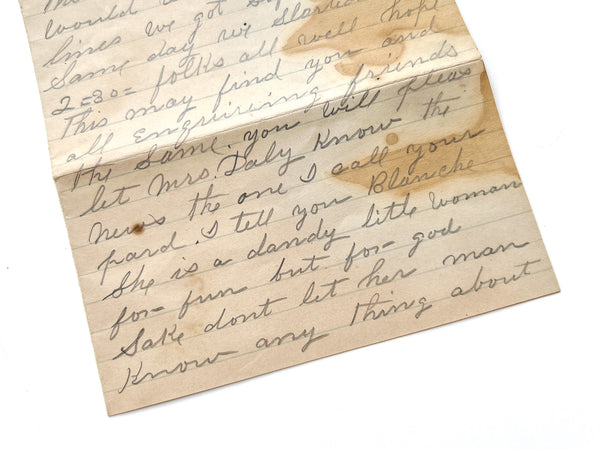 would
lines we got
Same day we Started
2=30= folks all well hope
This may find you and
all enquiring friends
the Same. you will pleas
let Mrs. Daly Know the
news the one I call your
pard. I tell you Blanche
She is a dandy little woman
for- fun but for- god
Sake dont let her man
Know any thing about